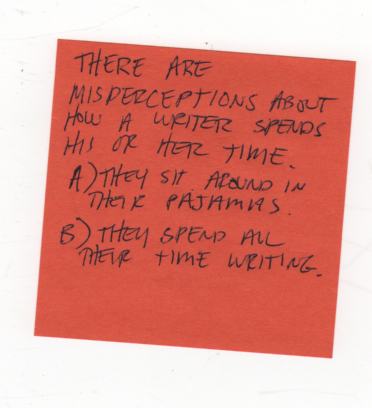 THERE ARE
MISPERCEPTIONS ABOUT
HOW A WRITER SPENDS
HIS OR HER TIME.
A) THEY SIT AROUND IN
THEIR PAJAMAS.
B) THEY SPEND ALL
THEIR TIME WRITING.